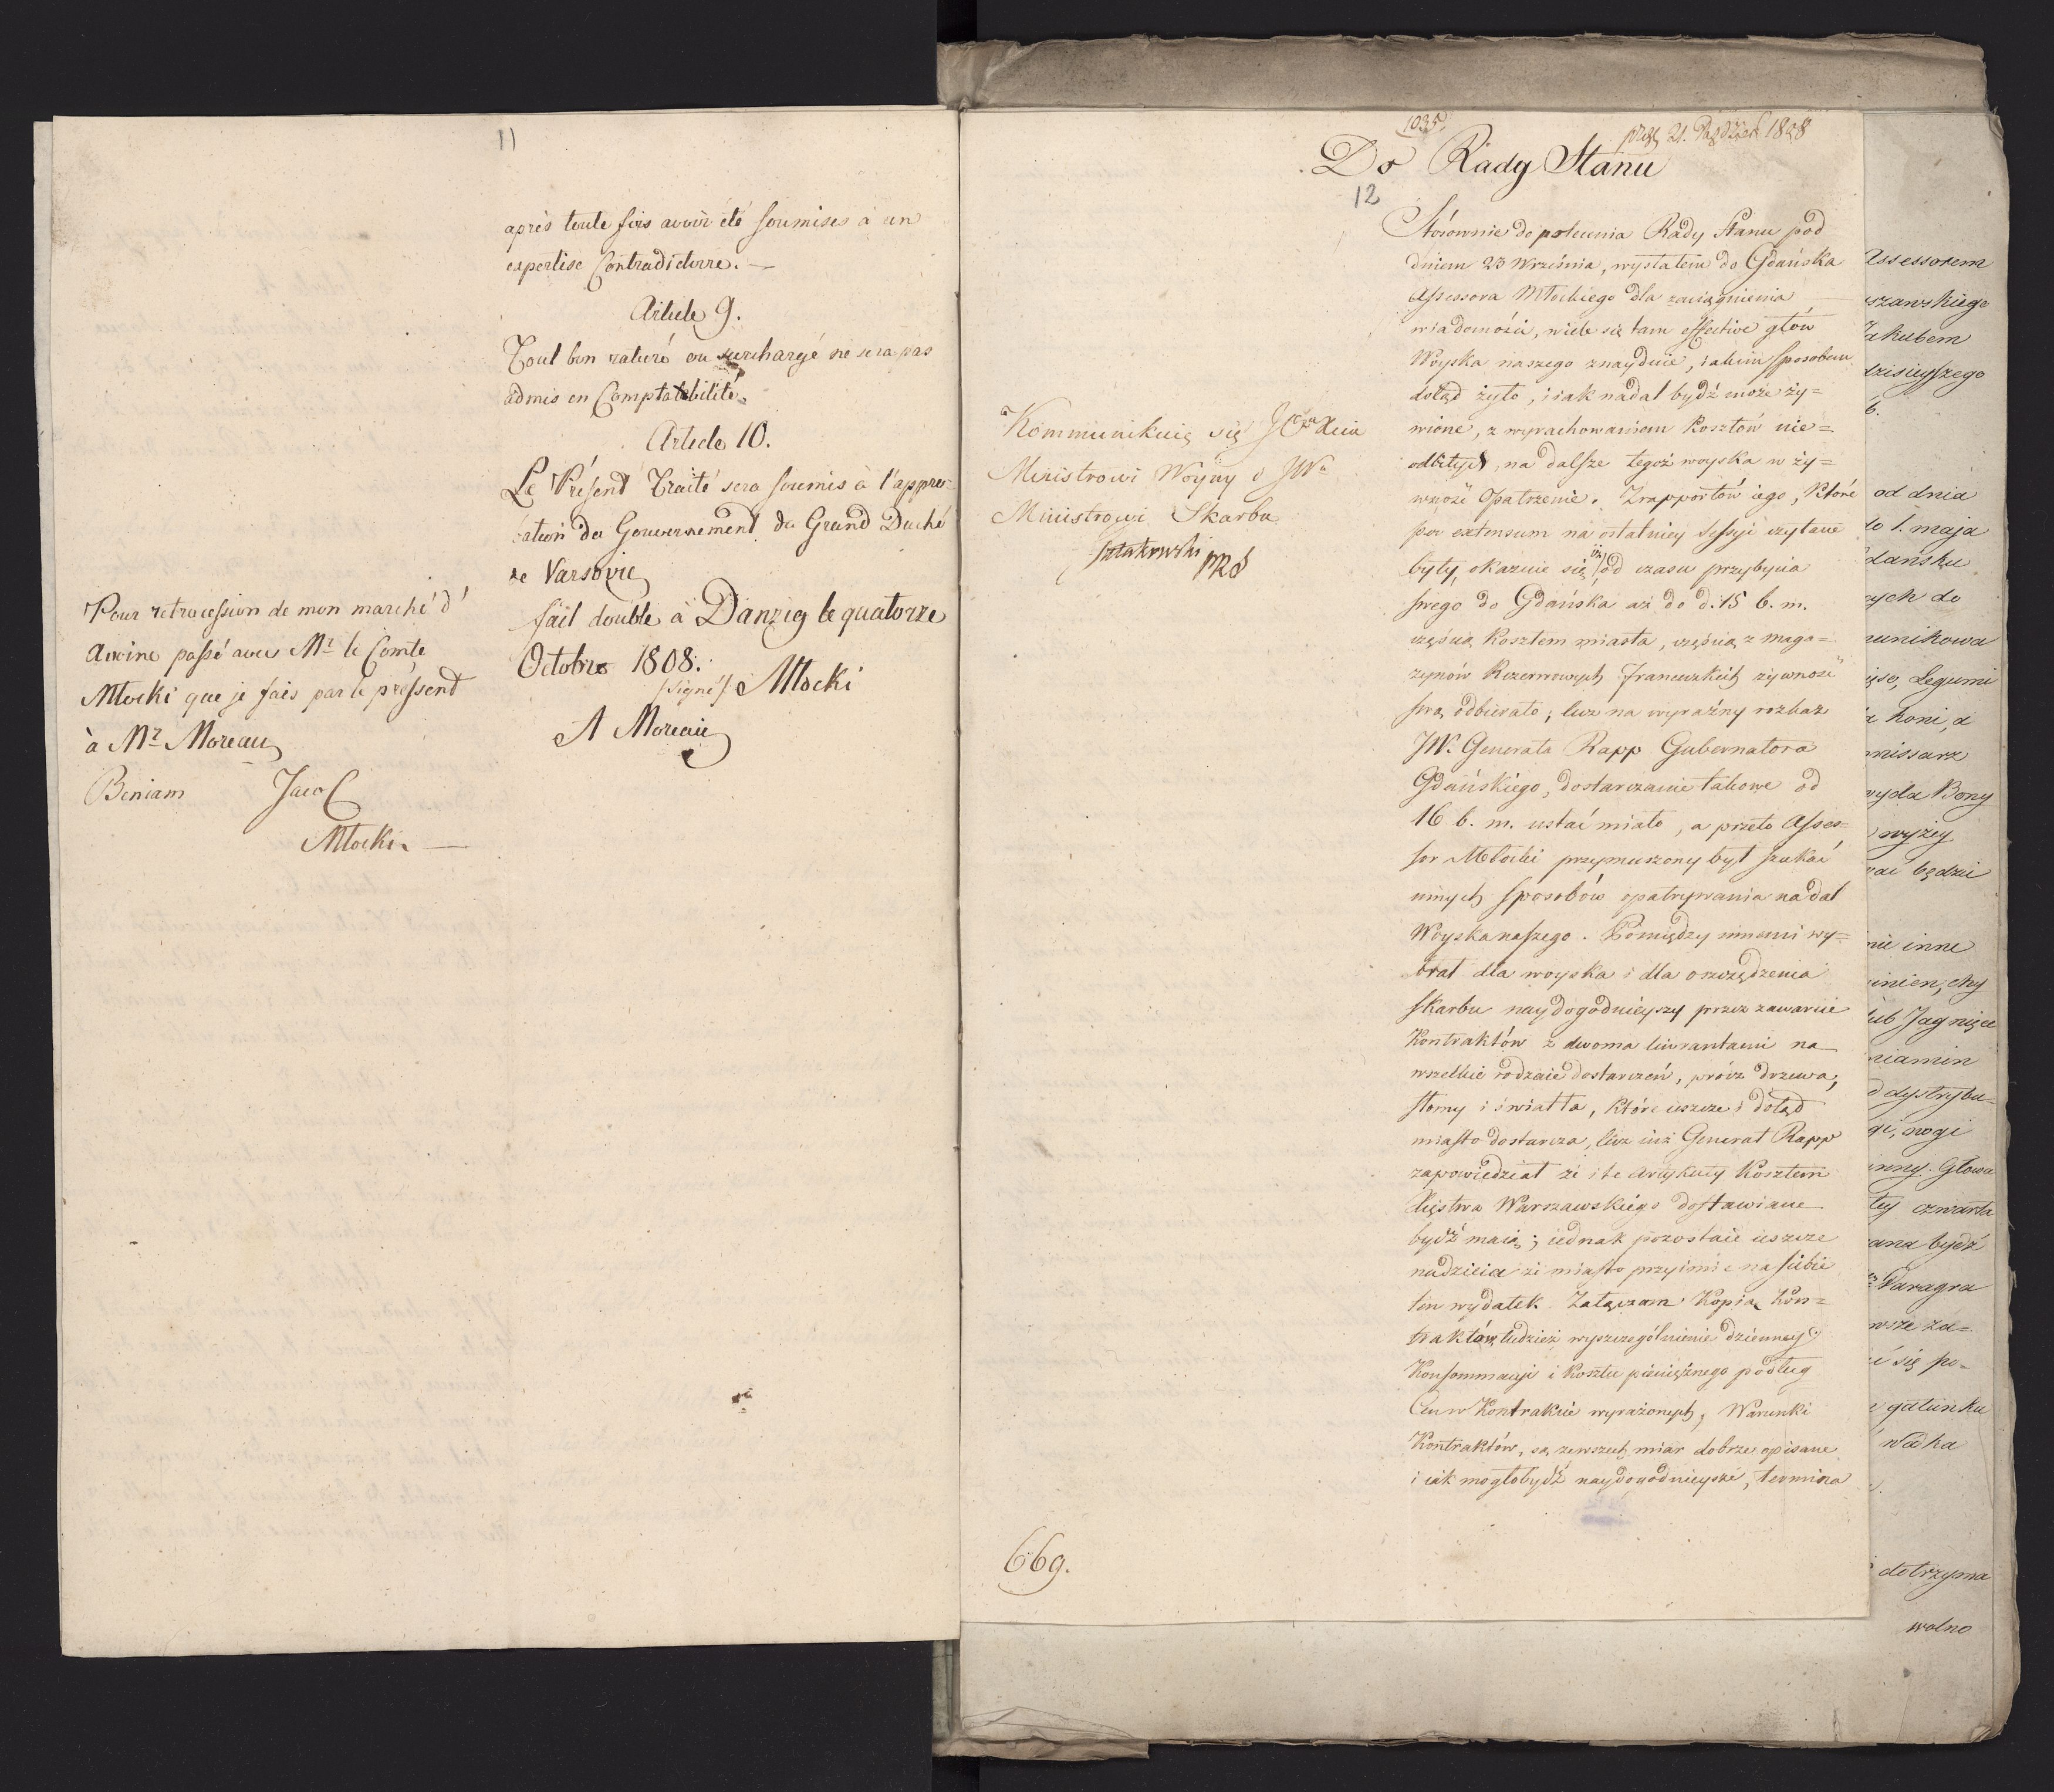 11
après toute fois avoir été soumises à un
expertise Contradictoire. —
Article 9.
Tout bon raturé ou surchargé ne sera pas
admis en Comptabilité.
Article 10.
Le Présent Traité sera soumis à l'appro=
bation du Gouvernement du Grand Duché
de Varsovie
fait double à Danzig le quatorze
Octobre 1808.
/signé/ Młocki
A Moreau
Pour retrocession de mon marché d'
Avoine passé avec Mr. le Comte
Młocki que je fais par le présent
à Mr. Moreau
Beniam Jacob
Młocki. —
1035.
21. Paździer 1808
Do Rady Stanu
12
Stósownie do polecenia Rady Stanu pod
dniem 23 Września, wysłałem do Gdańska
Assessora Młockiego dla zaciągnienia
wiadomości, wiele się tam effective głów
Woyska naszego znayduie, iakim sposobem
dotąd żyło, i iak nadal bydź może ży=
wione, z wyrachowaniem kosztów nie=
odbitych, na dalsze tegoż woyska w ży=
wność opatrzenie. Z rapportów iego, które
per extensum na ostatniey sessyi czytane
były, okazuie się, iż od czasu przybycia
swego do Gdańska aż do d. 15 b. m.
częścią kosztem miasta, częścią z maga=
zynów Rezerwowych Francuzkich żywność
swą odbierało; lecz na wyraźny rozkaz
JW. Generała Rapp Gubernatora
Gdańskiego, dostarczanie takowe od
16 b. m. ustać miało, a przeto Asses=
sor Młocki przymuszony był szukać
innych sposobów opatrywania nadal
Woyska naszego. Pomiędzy innemi wy=
brał dla woyska i dla oszczędzenia
skarbu naydogodnieyszy przez zawarcie
Kontraktów z dwoma liwerantami na
wszelkie rodzaie dostarczeń, prócz drzewa,
słomy i światła, które ieszcze i dotąd
miasto dostarcza, lecz iuż Generał Rapp
zapowiedział że i te artykuły kosztem
Xięstwa Warszawskiego dostawiane
bydź maią; iednak pozostaie ieszcze
nadzieia że miasto przyimie na siebie
ten wydatek. Załączam Kopią Kon=
traktów, tudzież wyszczególnienie dzienney
Konsommacyi i kosztu pieniężnego podług
Cen w Kontrakcie wyrażonych, Warunki
Kontraktów, są zewszech miar dobrze opisane
i iak mogło bydź naydogodnieysze, termina
Kommunikuię się JO Xciu
Ministrowi Woyny i JWu
Ministrowi Skarbu
669.
Assessorem
szawskiego
Jakubem
dzisieyszego
6.
od dnia
do 1. maja
Gdańsku
ych do
munikowa
ięso, Legumi
koni, a
missarz
wyda Bony
wyżey
ać będzie
nie inne
winien, chy
lub Jagnięce
niamin
dystrybu
gi, nogi
inny. Głowa
tey czwarta
ana bydź
Paragra
wsze za=
ć się po-
gatunku
waha
dotrzyma
wolno